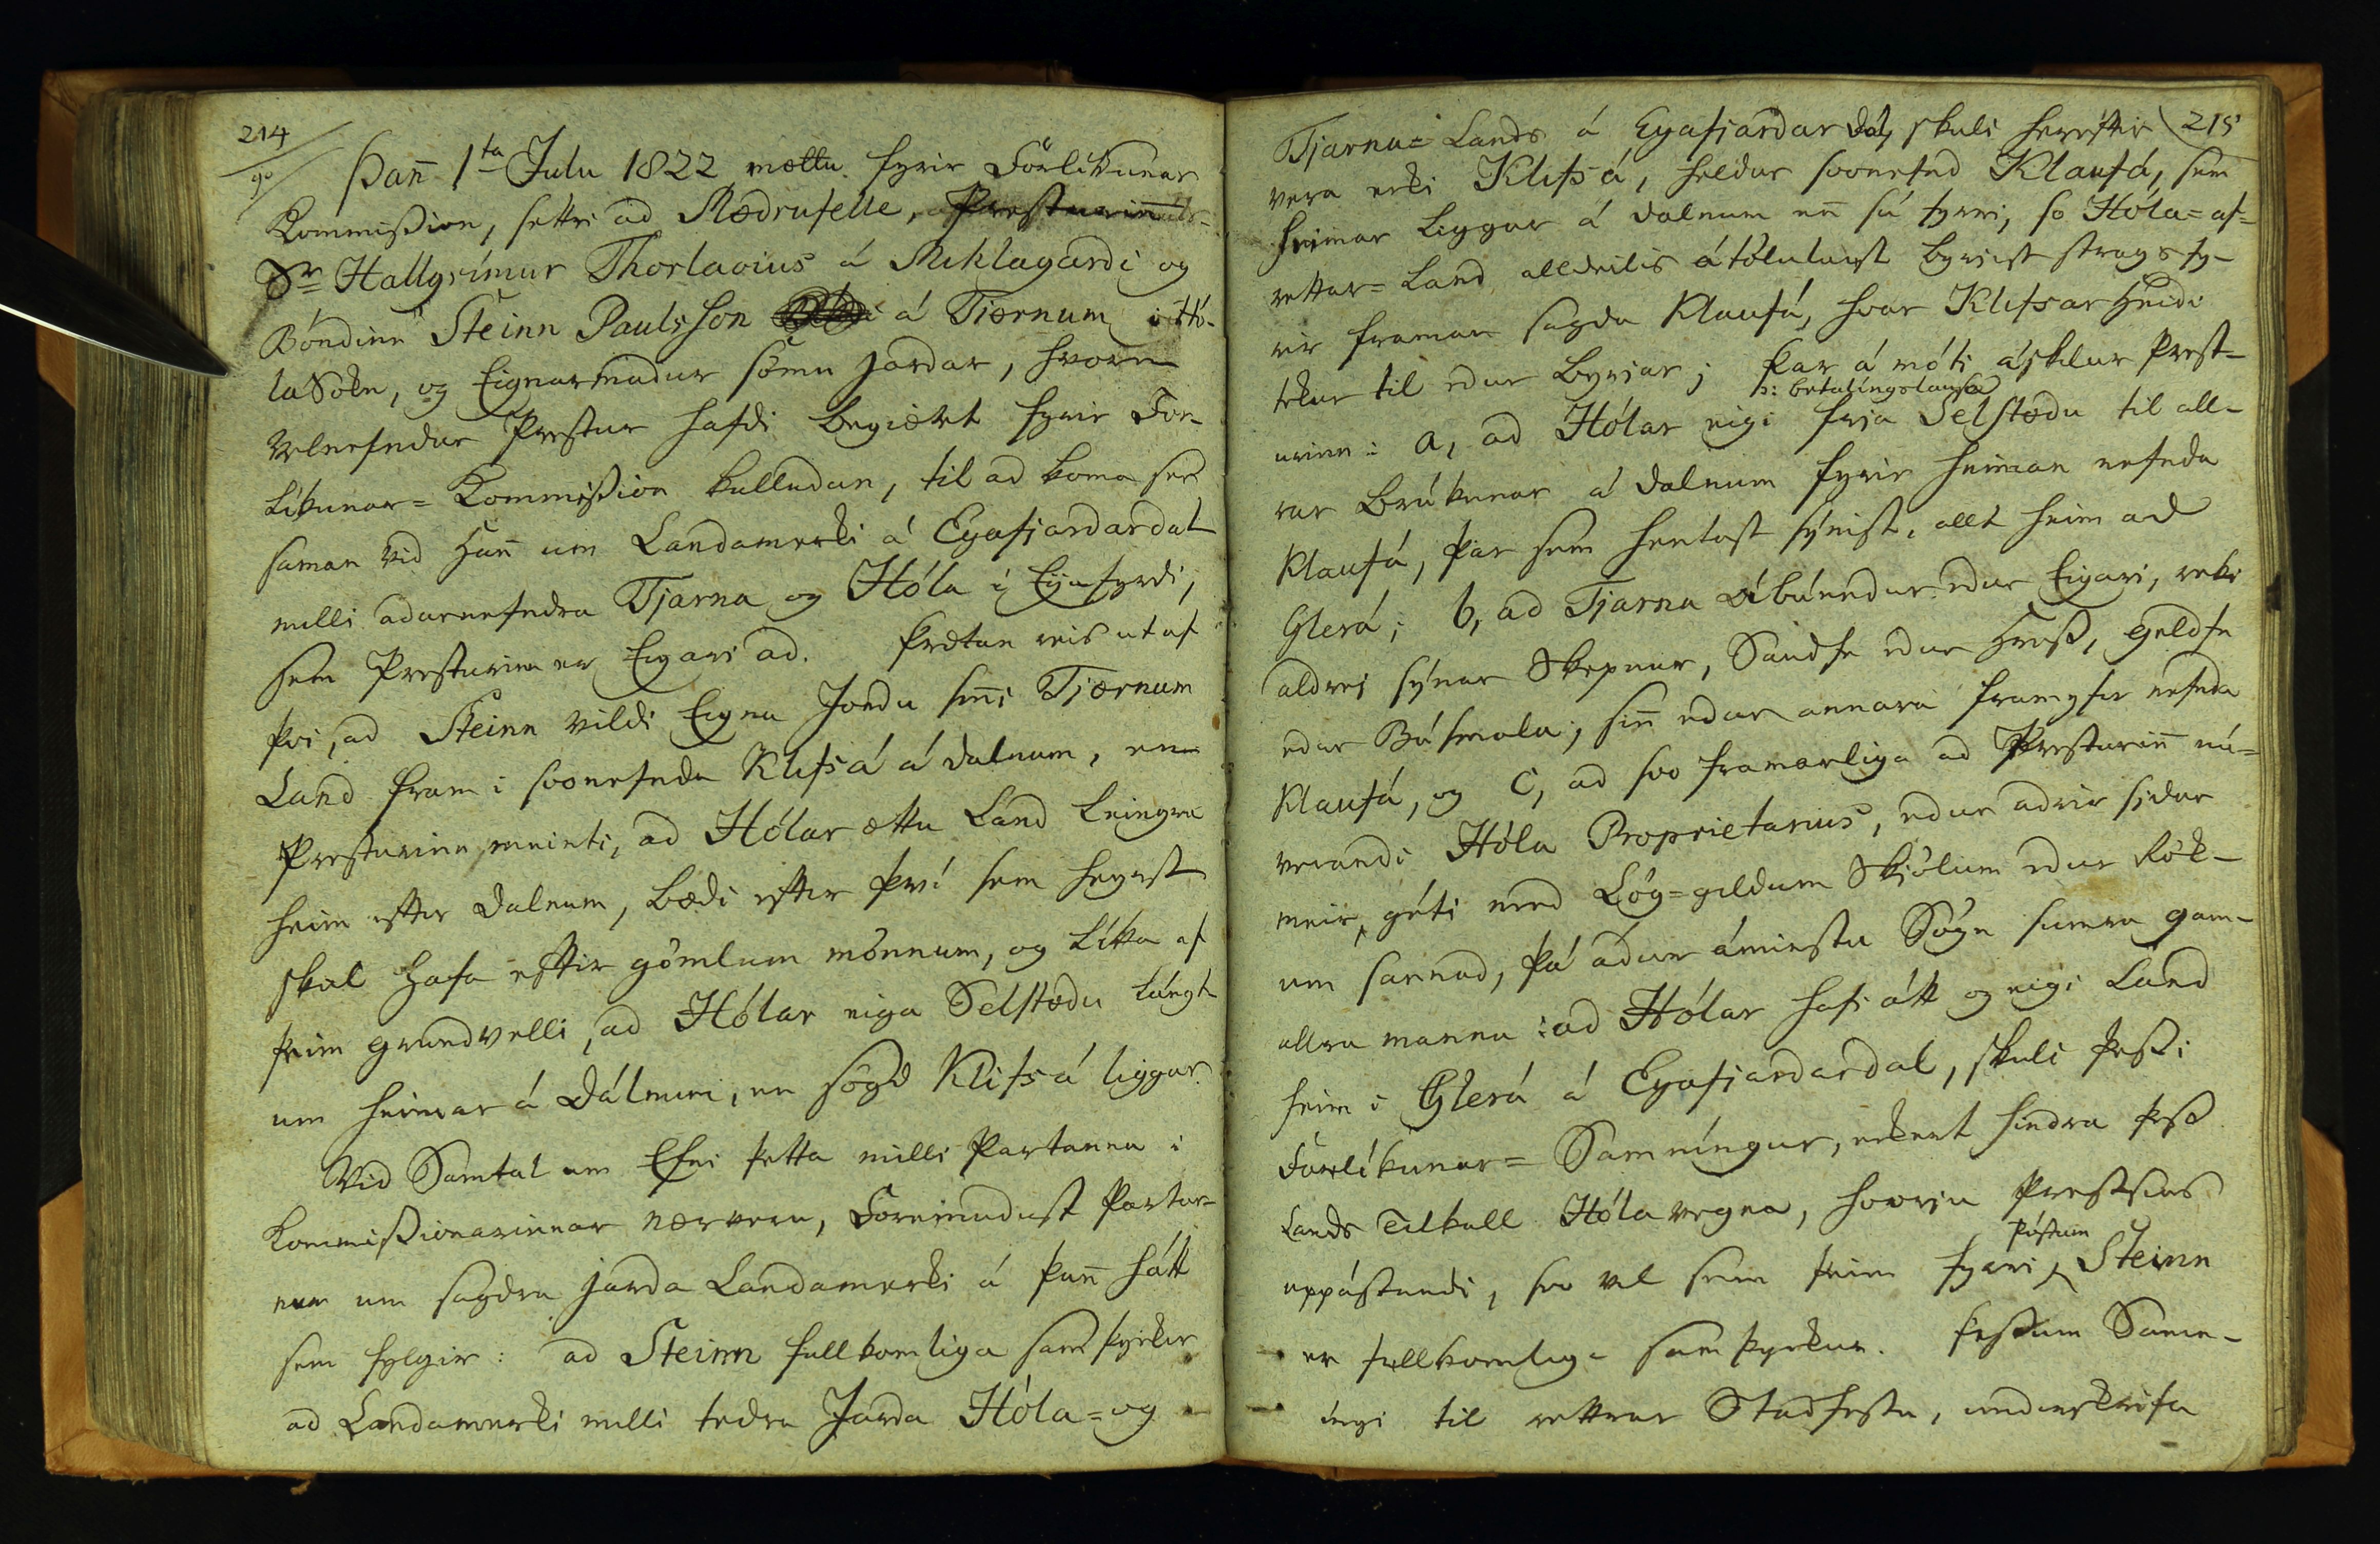 214
90
Þan̄ 1ta Julii 1822 mættu fyrir Forlikunar
Kommission, settri ad Mödrufelle, Presturinn
Sr Hallgrímur Thorlacius á Miklagardi og
Bóndinn Steinn Paulsson á Tiörnum i Hó-
la Sókn, og Eignarmadur sömu jardar, hvorn
Velnefndur Prestur hafdi begiært fyrir For-
líkunar= Kommission kalladan, til ad koma sér
saman vid Han̄ um Landamerki á Eyafjardardal
milli ádurnefndra Tjarna og Hóla i Eyafyrdi,
sem Presturinn er Eigari ad. Þrætan reis utaf
þvi, ad Steinn vildi Eigna Jördu sin̄i Tiörnum
Land fram i svonefnda Klifsá á dalnum, enn
Presturinn meinti, ad Hólar ættu Land leingra
heim eftir Dalnum, bædi eftir því sem heyrst
skal Hafa eftir gömlum mönnum, og líka af
þeim grundvelli, ad Hólar eiga Selstödu lángt
um heimar á Dálnum, en sögd Klifsá liggur.
Vid Samtal um Efni þetta milli Partanna i
Kommissionarinnar nærveru, Foreinudust Partar-
ner um sagdra jarda Landamerki á þan̄ hátt
sem fylgir: ad Steinn fullkomliga samþykir
ad Landamerki milli tedra Jarda Hóla= og
215
Tjarna= Lands á Eyafjardardal, skuli hereftir
vera ecki Klifsá, heldur svonefnd Klaufá, sem
heimar liggur á dalnum en̄ sú fyrri, so Hóla= af=
rettar= Land alldeilis átölulaust byriar strags fy-
rir framan sagda Klaufá, hvar Klifsar Heidi
tekur til edur byriar; Þar á móti áskilur Prest=
þ: betalingslausa
urinn: a, ad Hólar eigi frja Selstödu til all-
rar Brúkunar á Dalnum fyrir heiman nefnda
Klaufá, þar sem hentast sýnist, allt heim ad
Glerá; b, ad Tjarna Ábúendur edur Eigari, reki
aldrei sýnar Skepnur, Saudfe edur Hross, Geldfe
edur Búsmala, sin̄ edur annara framyfir nefnda
Klaufá, og c, ad svo framarliga ad Presturin̄ nú=
verandi Hóla Proprietarius, edur adrir sidar
meir, géti med Lög=gildum Skjölum edur Rök-
um sannad, þá ádur áminstu Sögn sumra gam-
allra manna: ad Hólar hafi átt og eigi Land
heim i Glerá á Eyafjardardal, skuli þessi
Forlíkunar= Samníngur, eckert hindra þess
Lands Tilkall Hóla vegna, hvorju Prestsins
póstum
uppástandi, so vel sem þeim fyrri, Steinn
er fullkomliga samþykkur. Þessum Samn-
ingi til rettrar Stadfestu, underskrifa